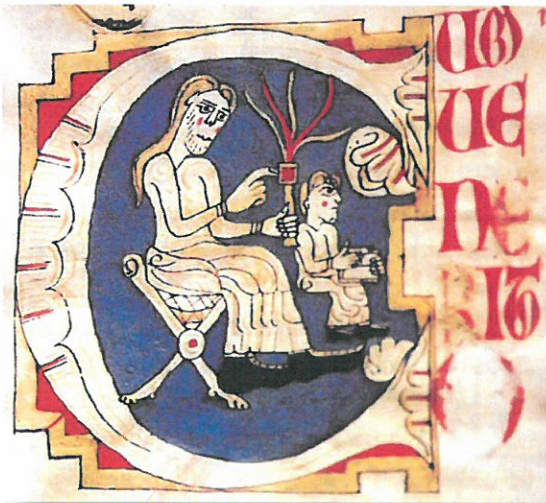 CUM
UE
NE
RIT